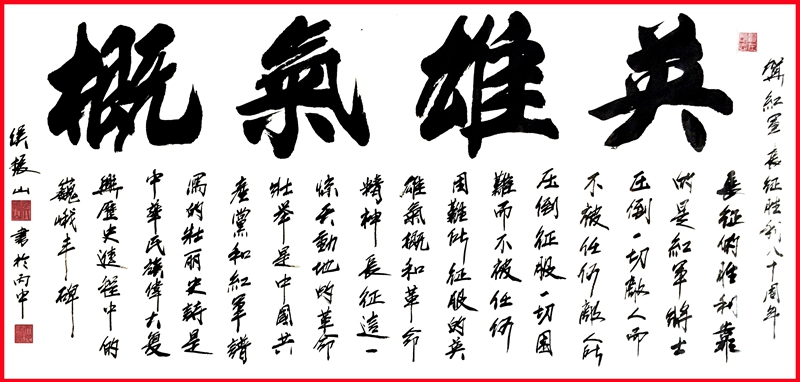 英雄氣概
紅軍長征胜利八十周年
長征的胜利靠
的是紅軍將士
压倒一切敵人而
不被任何敵人所
压倒征服一切困
難而不被任何
困難所征服的英
雄氣概和革命
精神長征這一
惊天動地的革命
壮举是中國共
產黨和紅軍譜
寫的壮丽史詩是
中華民族偉大复
興歷史進程中的
巍峨丰碑
山 書於丙申